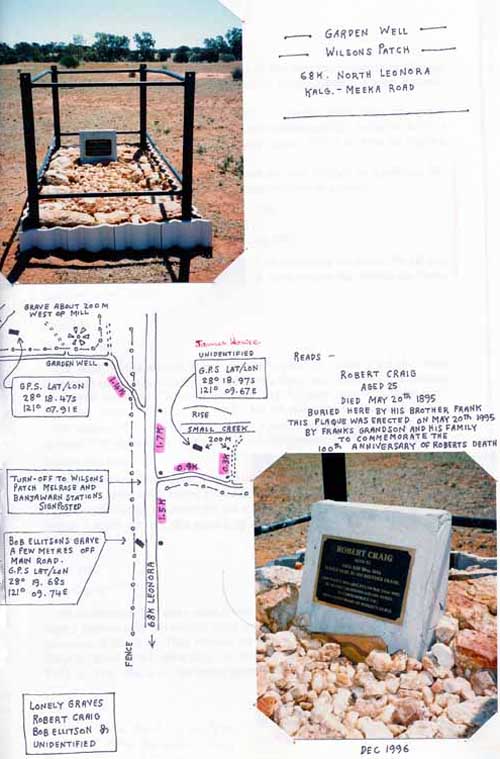 GARDEN WELL
WILSONS PATCH
68K. NORTH LEONORA
KALG.- MEEKA ROAD
GRAVE ABOUT 200M
WEST OF MILL
GARDEN WELL
G.P.S. LAT/LON
28° 18.47S
121° 07.91E
1.4K
1.7K
James Howie
UNIDENTIFIED
G.P.S LAT/LON
28° 18.97S
121° 09.67E
RISE
SMALL CREEK
200M
0.9K
0.3K
1.5K
TURN-OFF TO WILSONS
PATCH MELROSE AND
BANJAWARN STATIONS
SIGNPOSTED
BOB ELLITSONS GRAVE
A FEW METRES OFF
MAIN ROAD.
G.P.S LAT/LON
28° 19.68S
121° 09.74E
FENCE
68K LEONORA
READS -
ROBERT CRAIG
AGED 25
DIED MAY 20TH 1895
BURIED HERE BY HIS BROTHER FRANK
THIS PLAQUE WAS ERECTED ON MAY 20TH 1995
BY FRANKS GRANDSON AND HIS FAMILY
TO COMMEMORATE THE
100TH ANNIVERSARY OF ROBERTS DEATH
ROBERT CRAIG
LONELY GRAVES
ROBERT CRAIG
BOB ELLITSON &
UNIDENTIFIED
DEC 1996